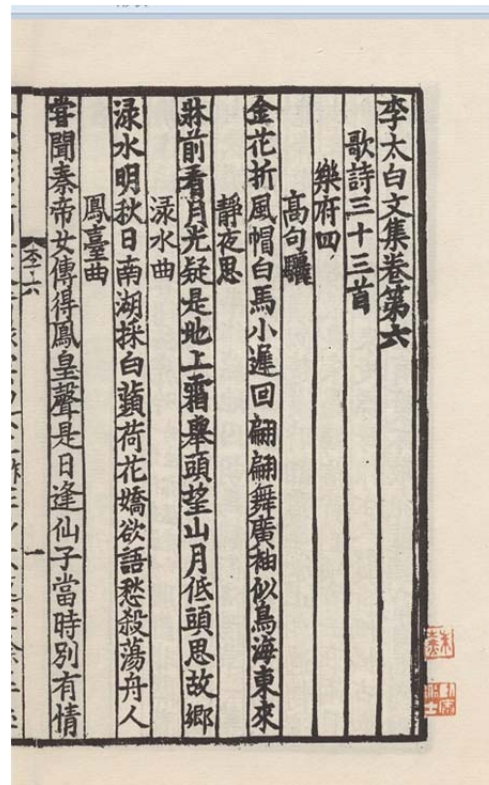 李太白文集卷第六
歌詩三十三首
樂府四
高句驪
金花折風帽白馬小遲回翩翩舞廣袖似鳥海東來
靜夜思
牀前看月光疑是地上霜舉頭望山月低頭思故鄉
淥水曲
淥水明秋日南湖採白蘋荷花嬌欲語愁殺蕩舟人
鳳臺曲
嘗聞秦帝女傳得鳳皇聲是日逢仙子當時別有情
六
一